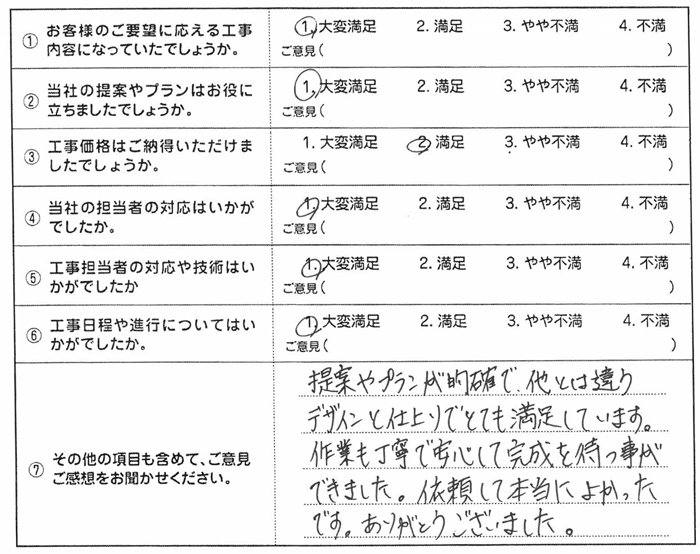 ① お客様のご要望に応える工事 1. 大変満足 2. 満足 3. やや不満 4. 不満
内容になっていたでしょうか。 ご意見( )
② 当社の提案やプランはお役に 1. 大変満足 2. 満足 3. やや不満 4. 不満
立ちましたでしょうか。 ご意見( )
③ 工事価格はご納得いただけま 1. 大変満足 2. 満足 3. やや不満 4. 不満
したでしょうか。 ご意見( )
④ 当社の担当者の対応はいかが 1. 大変満足 2. 満足 3. やや不満 4. 不満
でしたか。 ご意見( )
⑤ 工事担当者の対応や技術はい 1. 大変満足 2. 満足 3. やや不満 4. 不満
かがでしたか ご意見( )
⑥ 工事日程や進行についてはい 1. 大変満足 2. 満足 3. やや不満 4. 不満
かがでしたか。 ご意見( )
⑦ その他の項目も含めて、ご意見
ご感想をお聞かせください。
提案やプランが的確で、他とは違う
デザインと仕上りでとても満足しています。
作業も丁寧で安心して完成を待つ事が
できました。依頼して本当によかった
です。ありがとうございました。